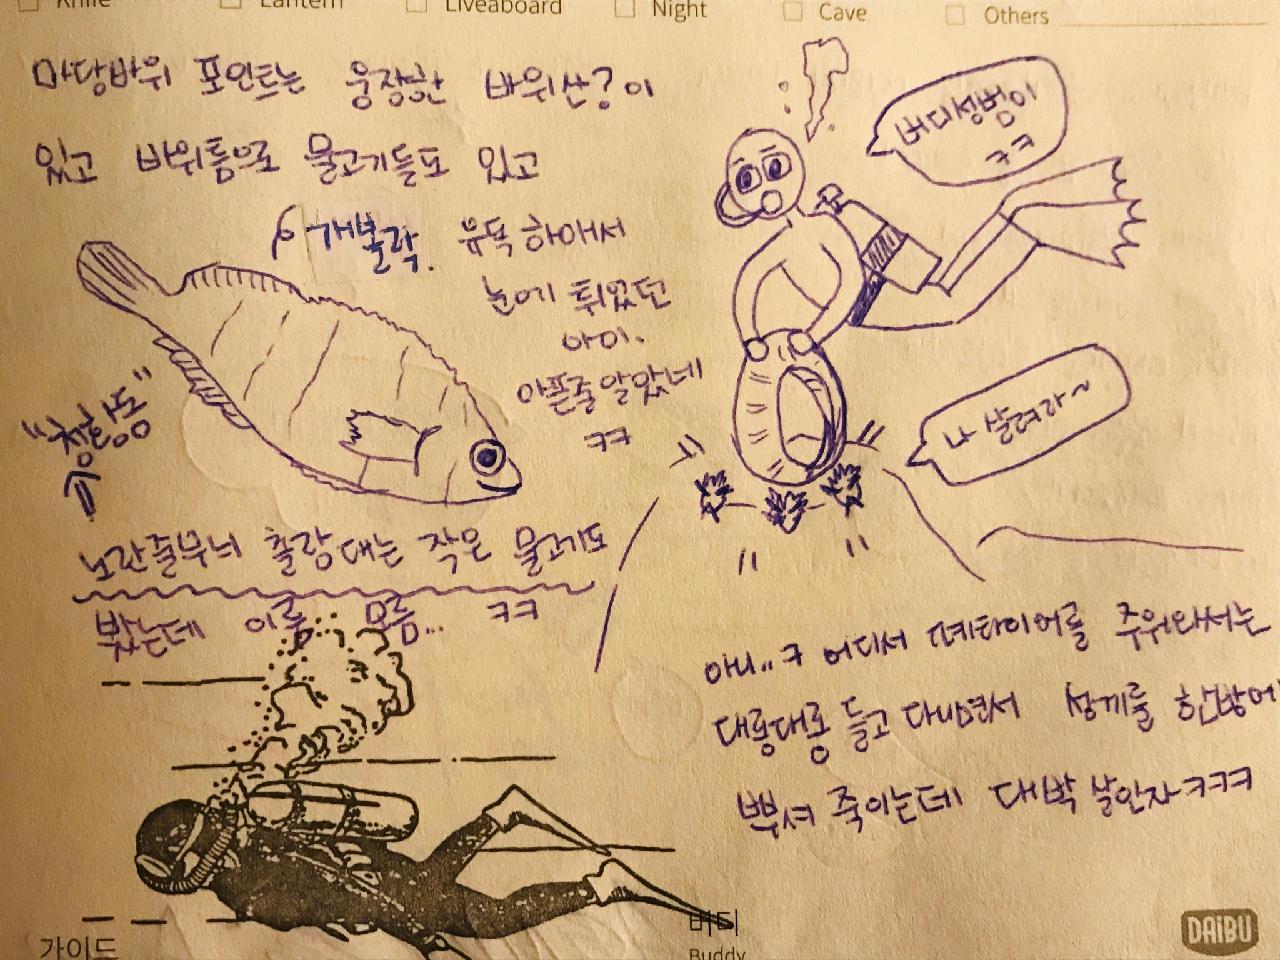 Knife Lantern Liveaboard Night Cave Others
마당바위 포인트는 웅장한 바위산?이
있고 바위틈으로 물고기들도 있고
개볼락. 유독 하얘서
눈에 튀었던
아이.
아픈줄 알았네
ㅋㅋ
"청황돔"
노란줄무늬 촐랑대는 작은 물고기도
봤는데 이름 모름... ㅋㅋ
버디성범이
ㅋㅋ
나 살려라~
아니..ㅋ 어디서 폐타이어를 주워와서는
대롱대롱 들고 다니면서 성게를 한방에
뿌셔 죽이는데 대박 살인자ㅋㅋㅋ
가이드
버디
Buddy
DAiBU